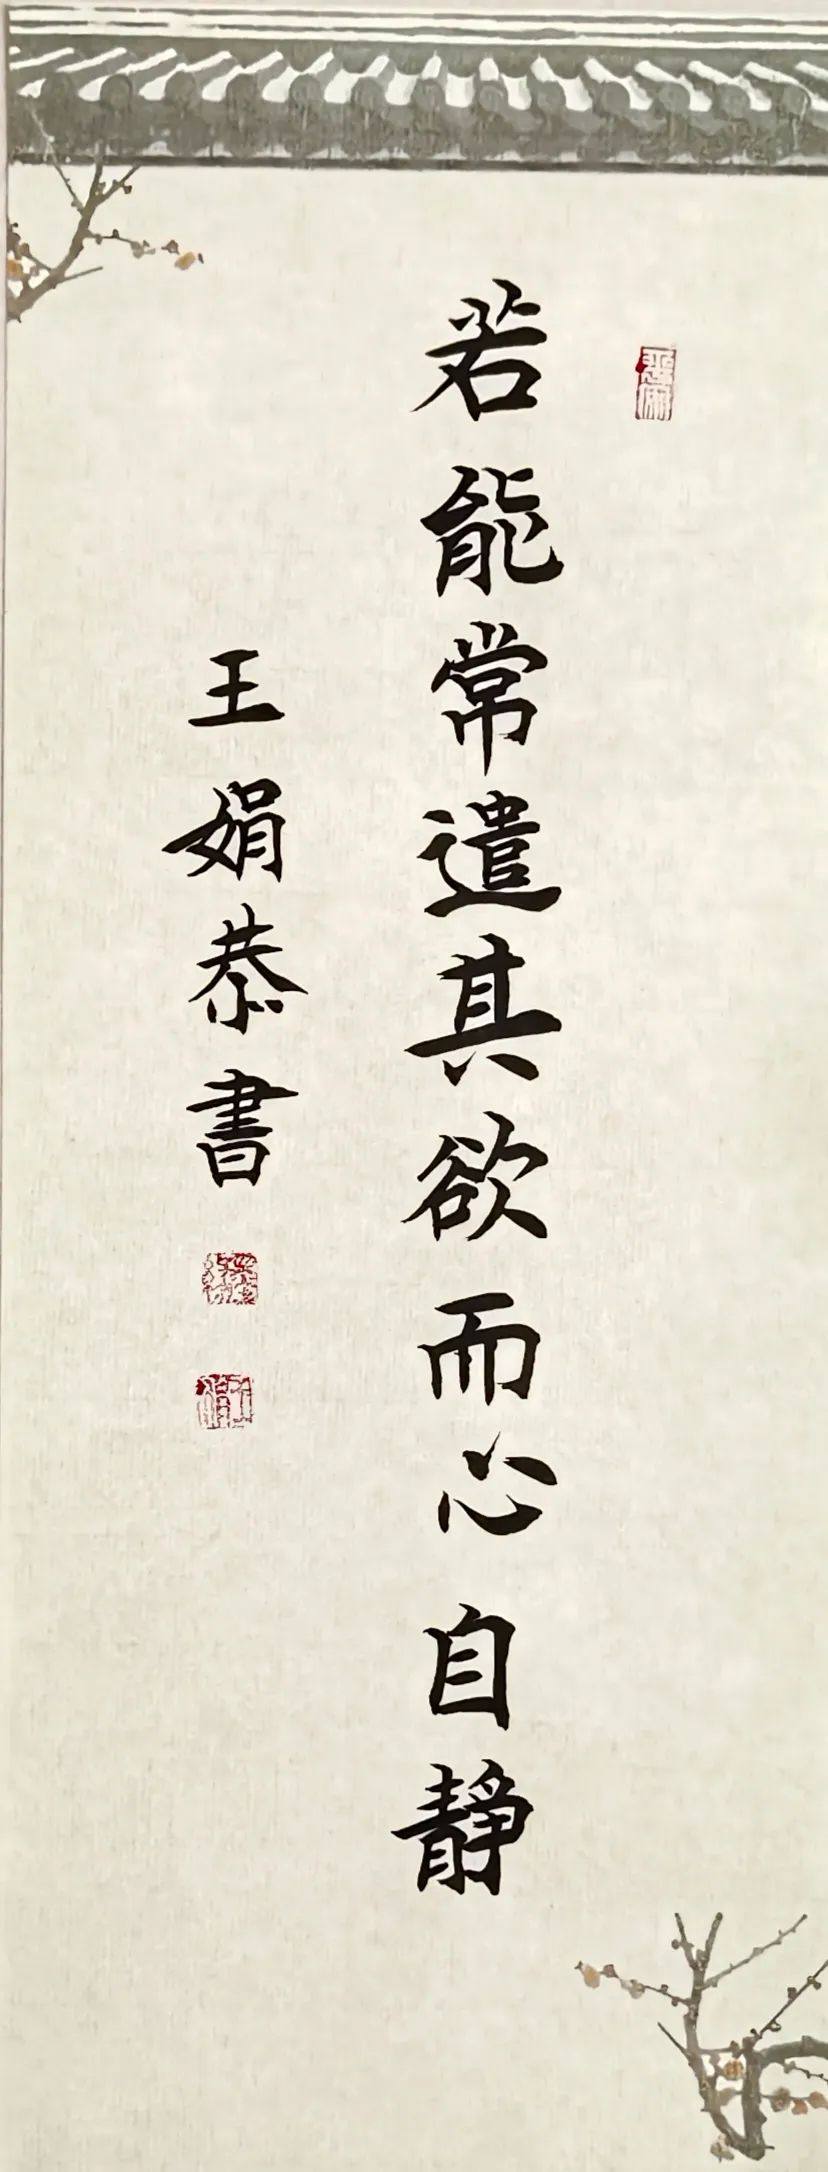 若能常遣其欲而心自靜
王娟恭書